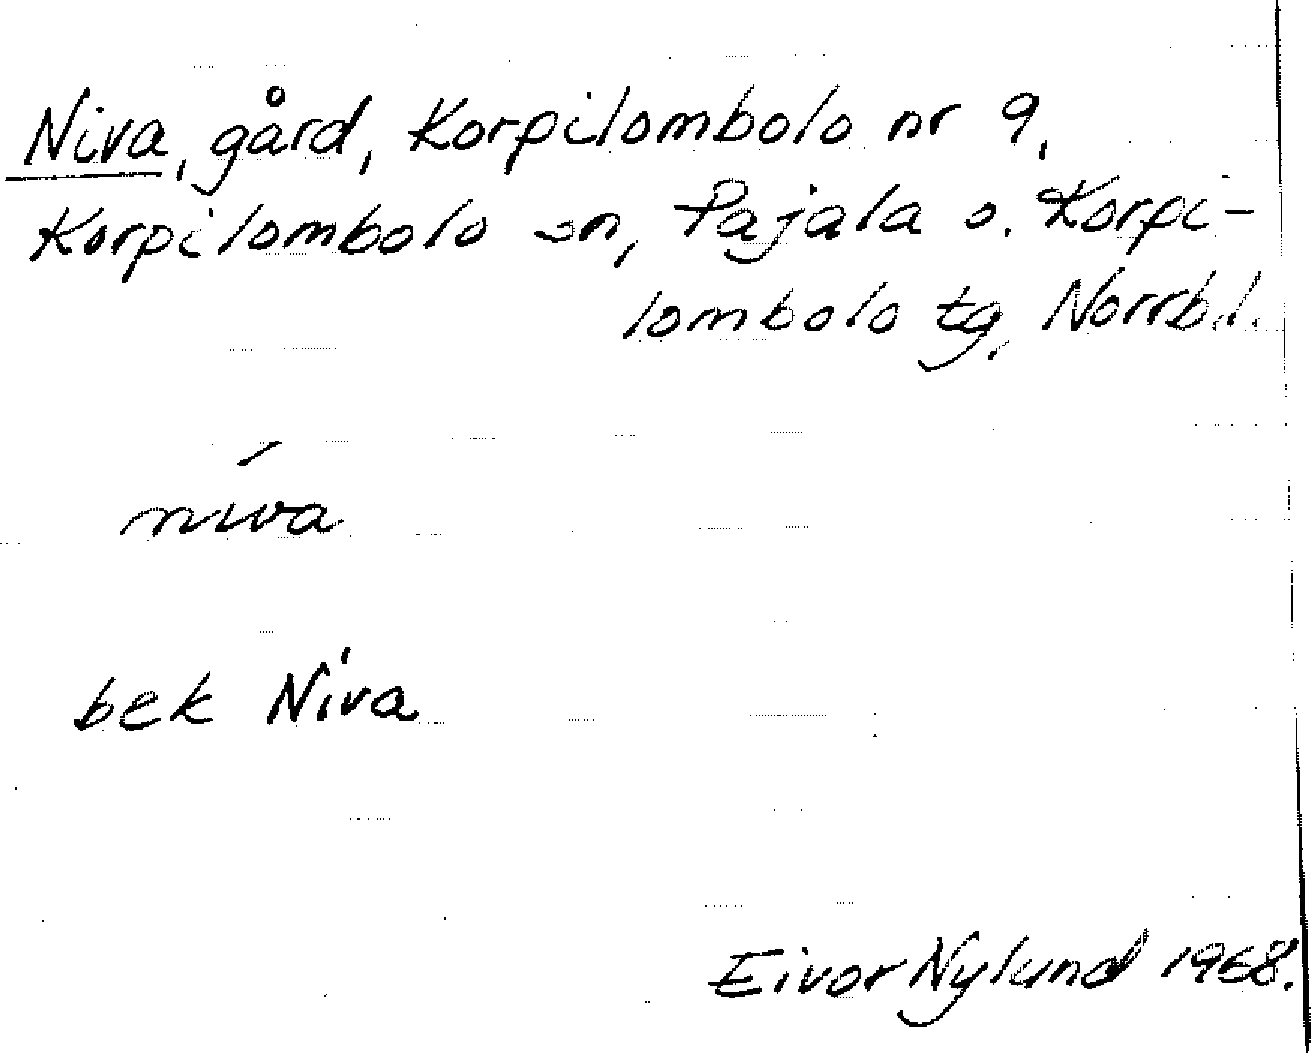 Niva, gård, Korpilombolo nr 9,
Korpilombolo sn, Pajala o. Korpi-
lombolo tg, Norrb.l.
níva
bek Níva
Eivor Nylund 1968.